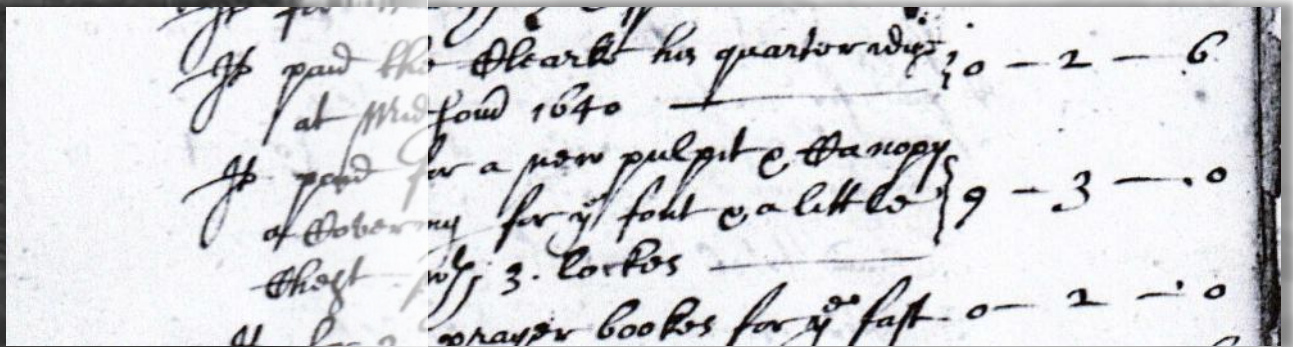 It paid the Clearke his quarteridge 0 — 2 — 6
at Midsond 1640
It paid for a new pulpit & Canopy
a Covering for ye font & a little 9 — 3 — 0
Chest wth 3. lockes
It for 2 prayer bookes for ye fast 0 — 2 — 0